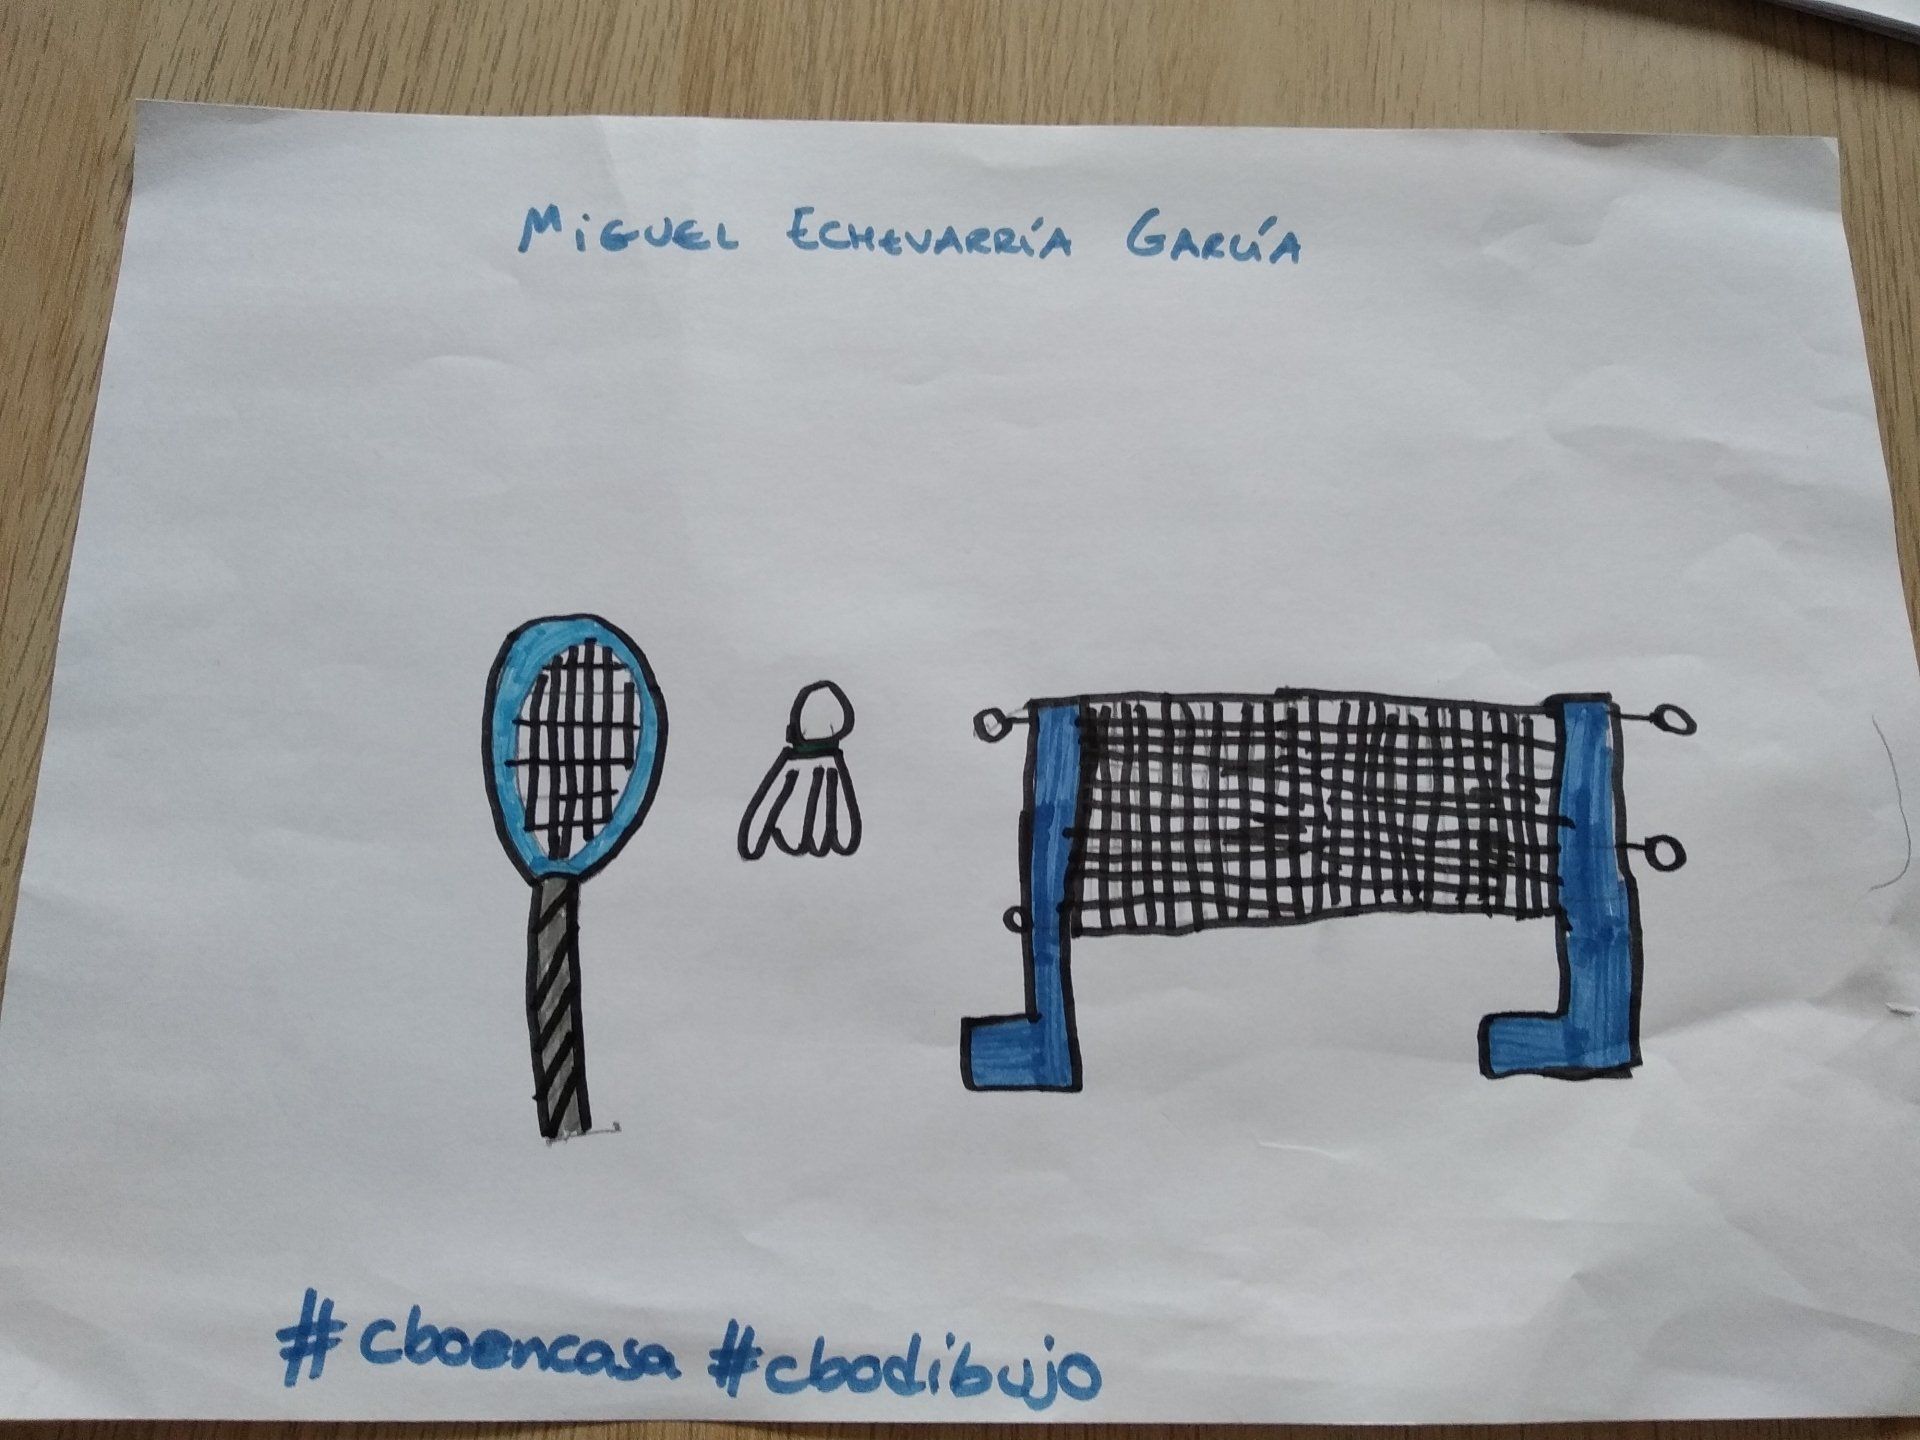 Miguel Echevarría García
#cboencasa #cbodibujo